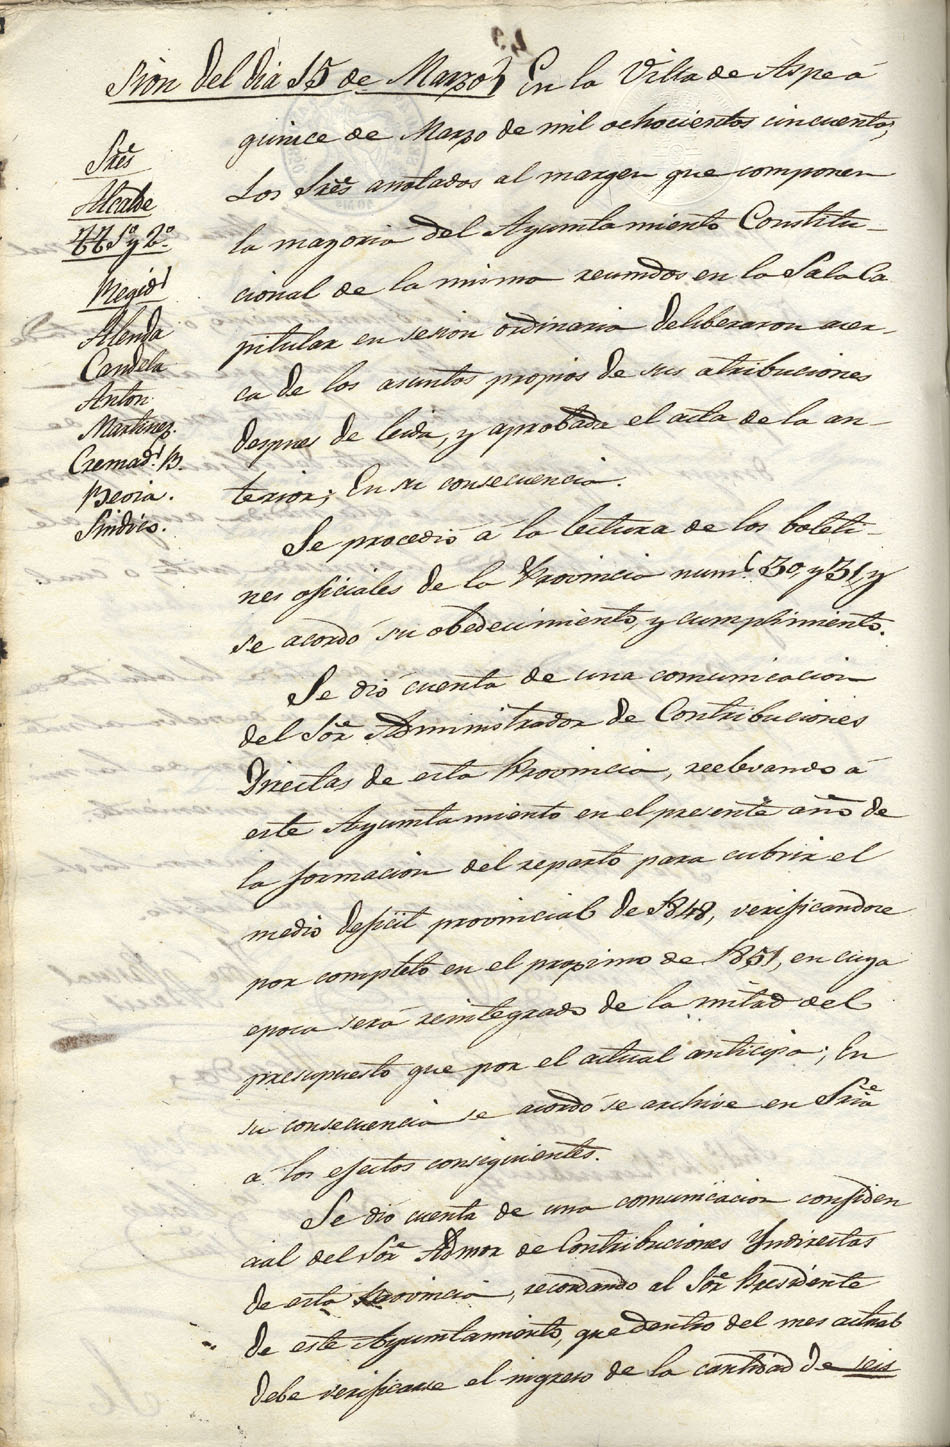 Sion del dia 15 de Marzo} En la Villa de Aspe á
quince de Marzo de mil ochocientos cincuenta,
Los Sres anotados al margen que componen
la mayoria del Ayuntamiento Constitu-
cional de la misma reunidos en la Sala Ca
pitular en sesion ordinaria deliberaron acer-
ca de los asuntos propios de sus atribuciones
despues de leida, y aprobada el acta de la an-
terior; En su consecuencia.
Sres
Alcalde
TT 1º y 2º
Regids
Alenda
Candela
Anton
Martinez.
Cremads B.
Beoia.
Sindico.
Se procedió á la lectura de los boleti-
nes oficiales de la Provincia nums 30, y 31, y
se acordó su obedecimiento, y cumplimiento.
Se dió cuenta de una comunicacion
del Sor Administrador de Contribuciones
Directas de esta Provincia, reelevando á
este Ayuntamiento en el presente año de
la formacion del reparto para cubrir el
medio deficit provincial de 1848, verificandose
por completo en el proximo de 1851, en cuya
epoca será reintegrado de la mitad del
presupuesto que por el actual anticipa; En
su consecuencia se acordó se archive en Sria
á los efectos consiguientes.
Se dió cuenta de una comunicacion confiden
cial del Sor Admor de Contribuciones Yndirectas
de esta Provincia, recordando al Sor Presidente
de este Ayuntamiento, que dentro del mes actual
debe verificarse el ingreso de la cantidad de seis